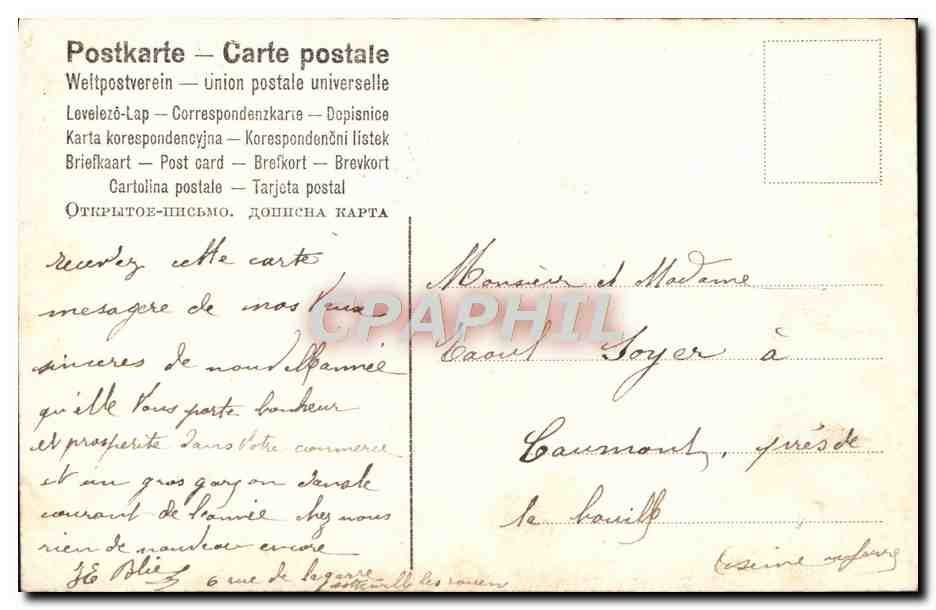 Postkarte — Carte postale
Weltpostverein — Union postale universelle
Levelező-Lap — Correspondenzkarte — Dopisnice
Karta korespondencyjna — Korespondenční lístek
Briefkaart — Post card — Brefkort — Brevkort
Cartolina postale — Tarjeta postal
Открытое-письмо. дописна карта
recevez cette carte
mesagere de nos Vœux
sinceres de nouvelle année
qu'elle Vous porte bonheur
et prosperite dans Votre commerce
et un gros garçon dans le
courant de l'année chez nous
rien de nouveau encore
6 rue de la garre
sotteville les rouen
Monsieur et Madame
Raoul Soyer à
Caumont, près de
la bouille
seine inferre
CPAPHIL